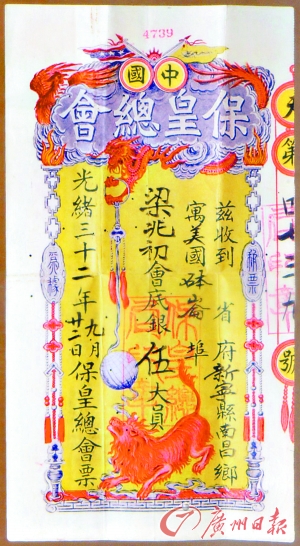 4739
中國
保皇總會
茲收到 省 府新寧縣南昌鄉
寓美國砵崙埠
梁兆初會底銀伍大員
光緒三十二年九月廿二日保皇總會票
第
號
廣州日報